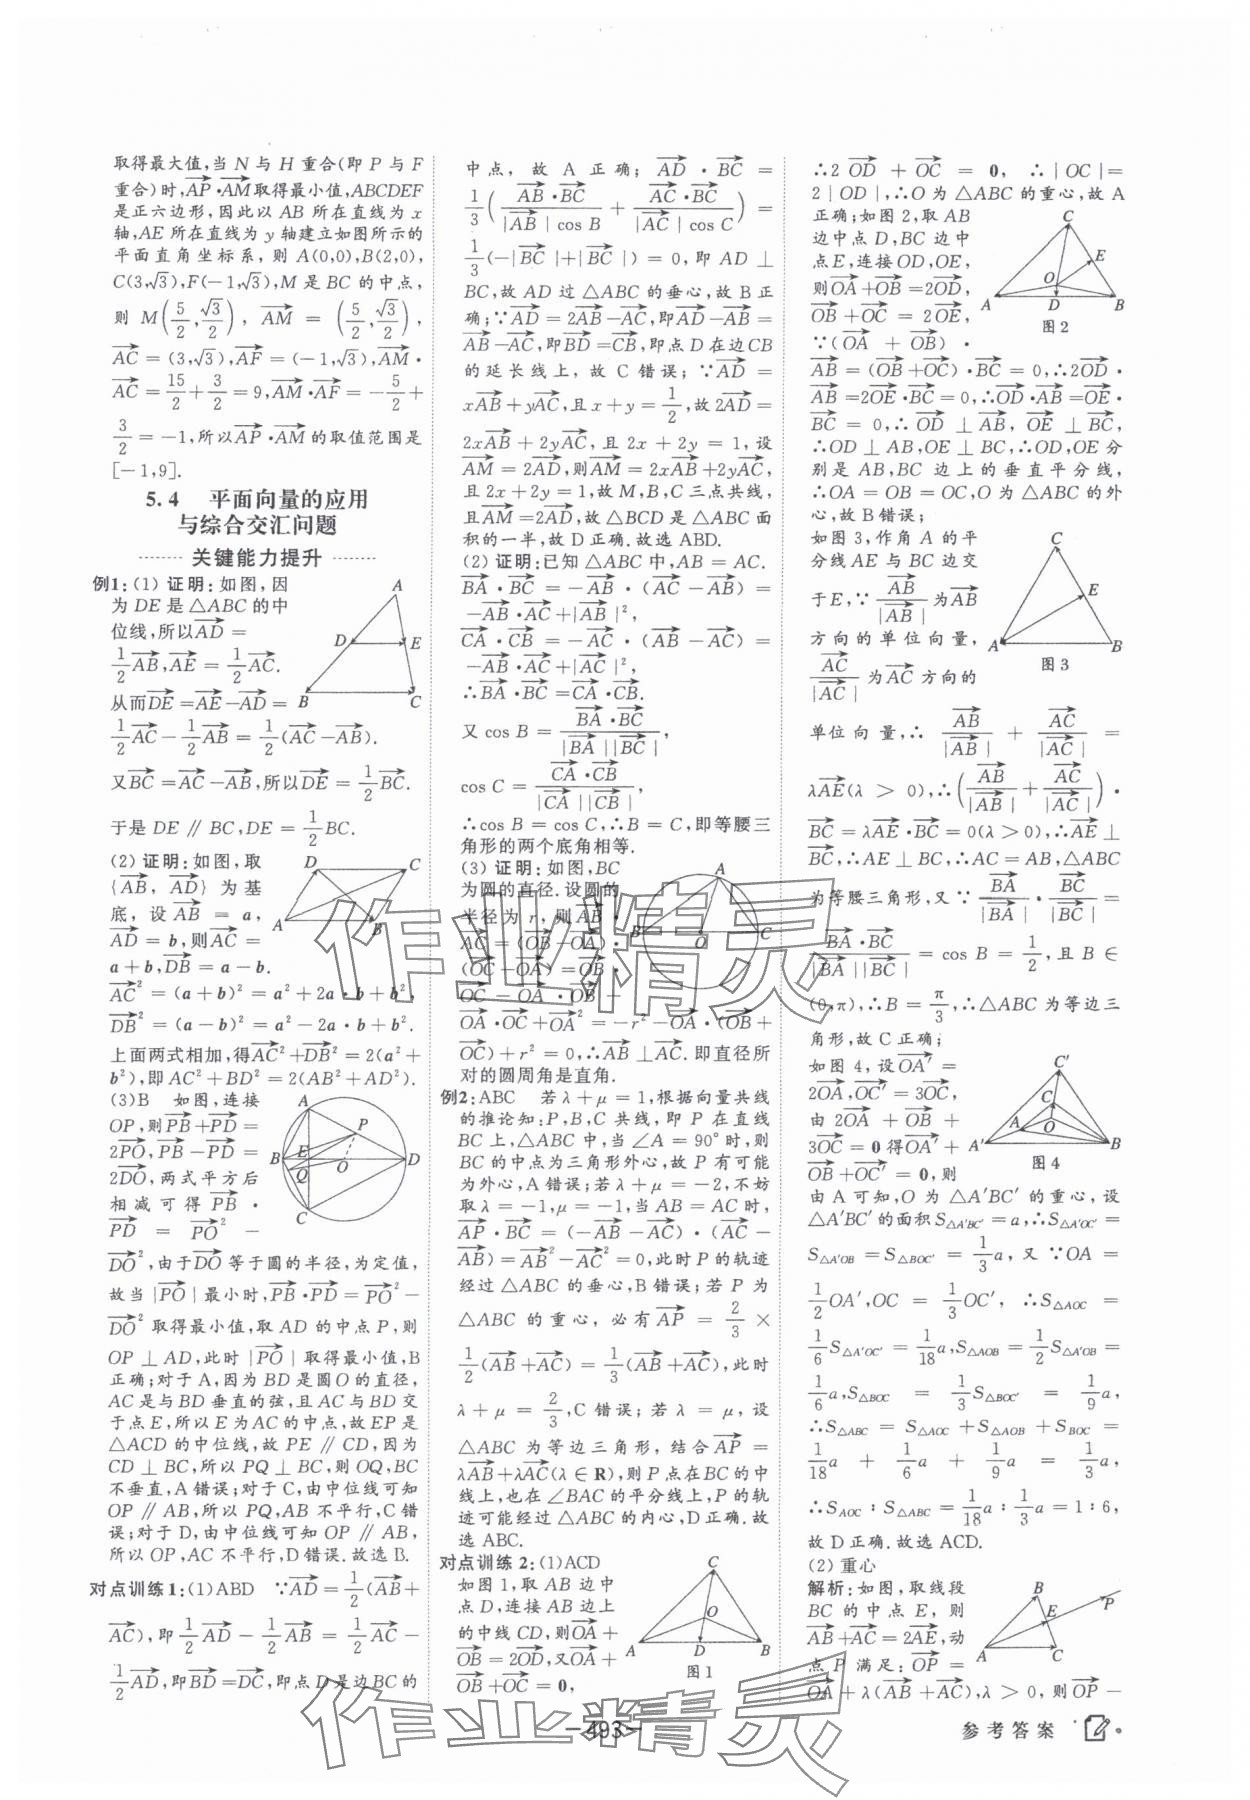 取得最大值,当 N 与 H 重合(即 P 与 F
重合)时,AP·AM取得最小值,ABCDEF
是正六边形,因此以 AB 所在直线为 x
轴,AE 所在直线为 y 轴建立如图所示的
平面直角坐标系,则 A(0,0),B(2,0),
C(3,√3),F(-1,√3),M 是 BC 的中点,
则 M(5/2,√3/2),AM = (5/2,√3/2),
AC = (3,√3),AF = (-1,√3),AM·
AC = 15/2 + 3/2 = 9,AM·AF = -5/2 +
3/2 = -1,所以AP·AM的取值范围是
[-1,9].
5.4 平面向量的应用
与综合交汇问题
关键能力提升
例1:(1) 证明:如图,因
为 DE 是 △ABC 的中
位线,所以AD =
1/2 AB,AE = 1/2 AC.
从而DE = AE - AD =
1/2 AC - 1/2 AB = 1/2 (AC - AB).
又BC = AC - AB,所以DE = 1/2 BC.
于是 DE ∥ BC,DE = 1/2 BC.
(2) 证明:如图,取
{AB, AD} 为基
底,设 AB = a,
AD = b,则AC =
a + b,DB = a - b.
AC² = (a + b)² = a² + 2a·b + b²,
DB² = (a - b)² = a² - 2a·b + b².
上面两式相加,得AC² + DB² = 2(a² +
b²),即 AC² + BD² = 2(AB² + AD²).
(3)B 如图,连接
OP,则PB + PD =
2PO,PB - PD =
2DO,两式平方后
相减可得 PB ·
PD = PO² -
DO²,由于DO等于圆的半径,为定值,
故当 |PO| 最小时,PB·PD = PO² -
DO²取得最小值,取 AD 的中点 P,则
OP ⊥ AD,此时 |PO| 取得最小值,B
正确;对于 A,因为 BD 是圆 O 的直径,
AC 是与 BD 垂直的弦,且 AC 与 BD 交
于点 E,所以 E 为 AC 的中点,故 EP 是
△ACD 的中位线,故 PE ∥ CD,因为
CD ⊥ BC,所以 PQ ⊥ BC,则 OQ,BC
不垂直,A 错误;对于 C,由中位线可知
OP ∥ AB,所以 PQ,AB 不平行,C 错
误;对于 D,由中位线可知 OP ∥ AB,
所以 OP,AC 不平行,D 错误.故选 B.
对点训练 1:(1)ABD ∵AD = 1/2 (AB +
AC),即 1/2 AD - 1/2 AB = 1/2 AC -
1/2 AD,即BD = DC,即点 D 是边 BC 的
中点,故 A 正确;AD · BC =
1/3 (AB·BC / |AB| cos B + AC·BC / |AC| cos C) =
1/3 (-|BC| + |BC|) = 0,即 AD ⊥
BC,故 AD 过 △ABC 的垂心,故 B 正
确;∵AD = 2AB - AC,即AD - AB =
AB - AC,即BD = CB,即点 D 在边 CB
的延长线上,故 C 错误;∵AD =
xAB + yAC,且 x + y = 1/2,故 2AD =
2xAB + 2yAC,且 2x + 2y = 1,设
AM = 2AD,则AM = 2xAB + 2yAC,
且 2x + 2y = 1,故 M,B,C 三点共线,
且AM = 2AD,故 △BCD 是 △ABC 面
积的一半,故 D 正确.故选 ABD.
(2) 证明:已知 △ABC 中,AB = AC.
BA · BC = -AB · (AC - AB) =
-AB·AC + |AB|²,
CA · CB = -AC · (AB - AC) =
-AB·AC + |AC|²,
∴BA·BC = CA·CB.
又 cos B = BA·BC / |BA||BC|,
cos C = CA·CB / |CA||CB|,
∴cos B = cos C,∴B = C,即等腰三
角形的两个底角相等.
(3) 证明:如图,BC
为圆的直径.设圆的
半径为 r,则 AB ·
AC = (OB - OA) ·
(OC - OA) = OB ·
OC - OA · OB -
OA·OC + OA² = -r² - OA·(OB +
OC) + r² = 0,∴AB ⊥ AC.即直径所
对的圆周角是直角.
例2:ABC 若 λ + μ = 1,根据向量共线
的推论知:P,B,C 共线,即 P 在直线
BC 上,△ABC 中,当 ∠A = 90° 时,则
BC 的中点为三角形外心,故 P 有可能
为外心,A 错误;若 λ + μ = -2,不妨
取 λ = -1,μ = -1,当 AB = AC 时,
AP · BC = (-AB - AC) · (AC -
AB) = AB² - AC² = 0,此时 P 的轨迹
经过 △ABC 的垂心,B 错误;若 P 为
△ABC 的重心,必有 AP = 2/3 ×
1/2 (AB + AC) = 1/3 (AB + AC),此时
λ + μ = 2/3,C 错误;若 λ = μ,设
△ABC 为等边三角形,结合AP =
λAB + λAC(λ ∈ R),则 P 点在 BC 的中
线上,也在 ∠BAC 的平分线上,P 的轨
迹可能经过 △ABC 的内心,D 正确.故
选 ABC.
对点训练 2:(1)ACD
如图 1,取 AB 边中
点 D,连接 AB 边上
的中线 CD,则OA +
OB = 2OD,又OA +
OB + OC = 0,
∴2OD + OC = 0,∴|OC| =
2|OD|,∴O 为 △ABC 的重心,故 A
正确;如图 2,取 AB
边中点 D,BC 边中
点 E,连接 OD,OE,
则OA + OB = 2OD,
OB + OC = 2OE,
∵(OA + OB) ·
AB = (OB + OC)·BC = 0,∴2OD·
AB = 2OE·BC = 0,∴OD·AB = OE·
BC = 0,∴OD ⊥ AB,OE ⊥ BC,
∴OD ⊥ AB,OE ⊥ BC,∴OD,OE 分
别是 AB,BC 边上的垂直平分线,
∴OA = OB = OC,O 为 △ABC 的外
心,故 B 错误;
如图 3,作角 A 的平
分线 AE 与 BC 边交
于 E,∵ AB/|AB| 为 AB
方向的单位向量,
AC/|AC| 为 AC 方向的
单位向量,∴ AB/|AB| + AC/|AC| =
λAE(λ > 0),∴(AB/|AB| + AC/|AC|)·
BC = λAE·BC = 0(λ > 0),∴AE ⊥
BC,∴AE ⊥ BC,∴AC = AB,△ABC
为等腰三角形,又∵ BA/|BA| · BC/|BC| =
BA·BC / |BA||BC| = cos B = 1/2,且 B ∈
(0,π),∴B = π/3,∴△ABC 为等边三
角形,故 C 正确;
如图 4,设OA′ =
2OA,OC′ = 3OC,
由 2OA + OB +
3OC = 0 得OA′ +
OB + OC′ = 0,则
由 A 可知,O 为 △A′BC′ 的重心,设
△A′BC′ 的面积 S△A′BC′ = a,∴S△A′OC′ =
S△A′OB = S△BOC′ = 1/3 a,又 ∵OA =
1/2 OA′,OC = 1/3 OC′,∴S△AOC =
1/6 S△A′OC′ = 1/18 a,S△AOB = 1/2 S△A′OB =
1/6 a,S△BOC = 1/3 S△BOC′ = 1/9 a,
∴S△ABC = S△AOC + S△AOB + S△BOC =
1/18 a + 1/6 a + 1/9 a = 1/3 a,
∴S△AOC : S△ABC = 1/18 a : 1/3 a = 1 : 6,
故 D 正确.故选 ACD.
(2) 重心
解析:如图,取线段
BC 的中点 E,则
AB + AC = 2AE,动
点 P 满足:OP =
OA + λ(AB + AC),λ > 0,则OP -
图1
图2
图3
图4
—493—
参考答案
作业精灵
作业精灵